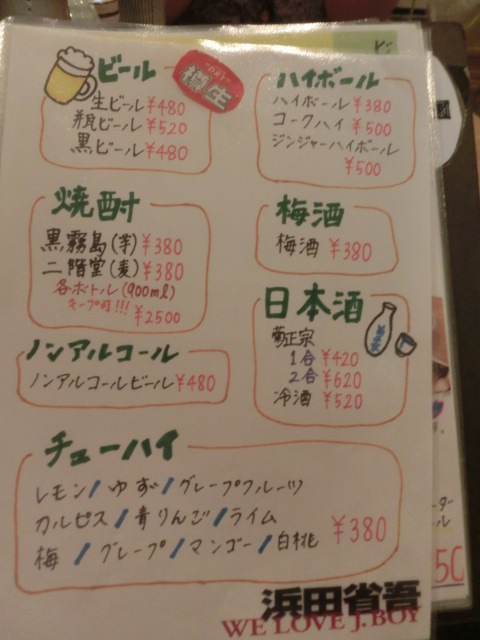 ビール
"DRY"
樽生
生ビール ¥480
瓶ビール ¥520
黒ビール ¥480
ハイボール
ハイボール ¥380
コークハイ ¥500
ジンジャーハイボール
¥500
焼酎
黒霧島(芋) ¥380
二階堂(麦) ¥380
各ボトル(900ml)
キープ可!!! ¥2500
梅酒
梅酒 ¥380
日本酒
菊正宗
1合 ¥420
2合 ¥620
冷酒 ¥520
ノンアルコール
ノンアルコールビール ¥480
チューハイ
レモン/ゆず/グレープフルーツ
カルピス/青りんご/ライム
梅/グレープ/マンゴー/白桃
¥380
浜田省吾
WE LOVE J.BOY